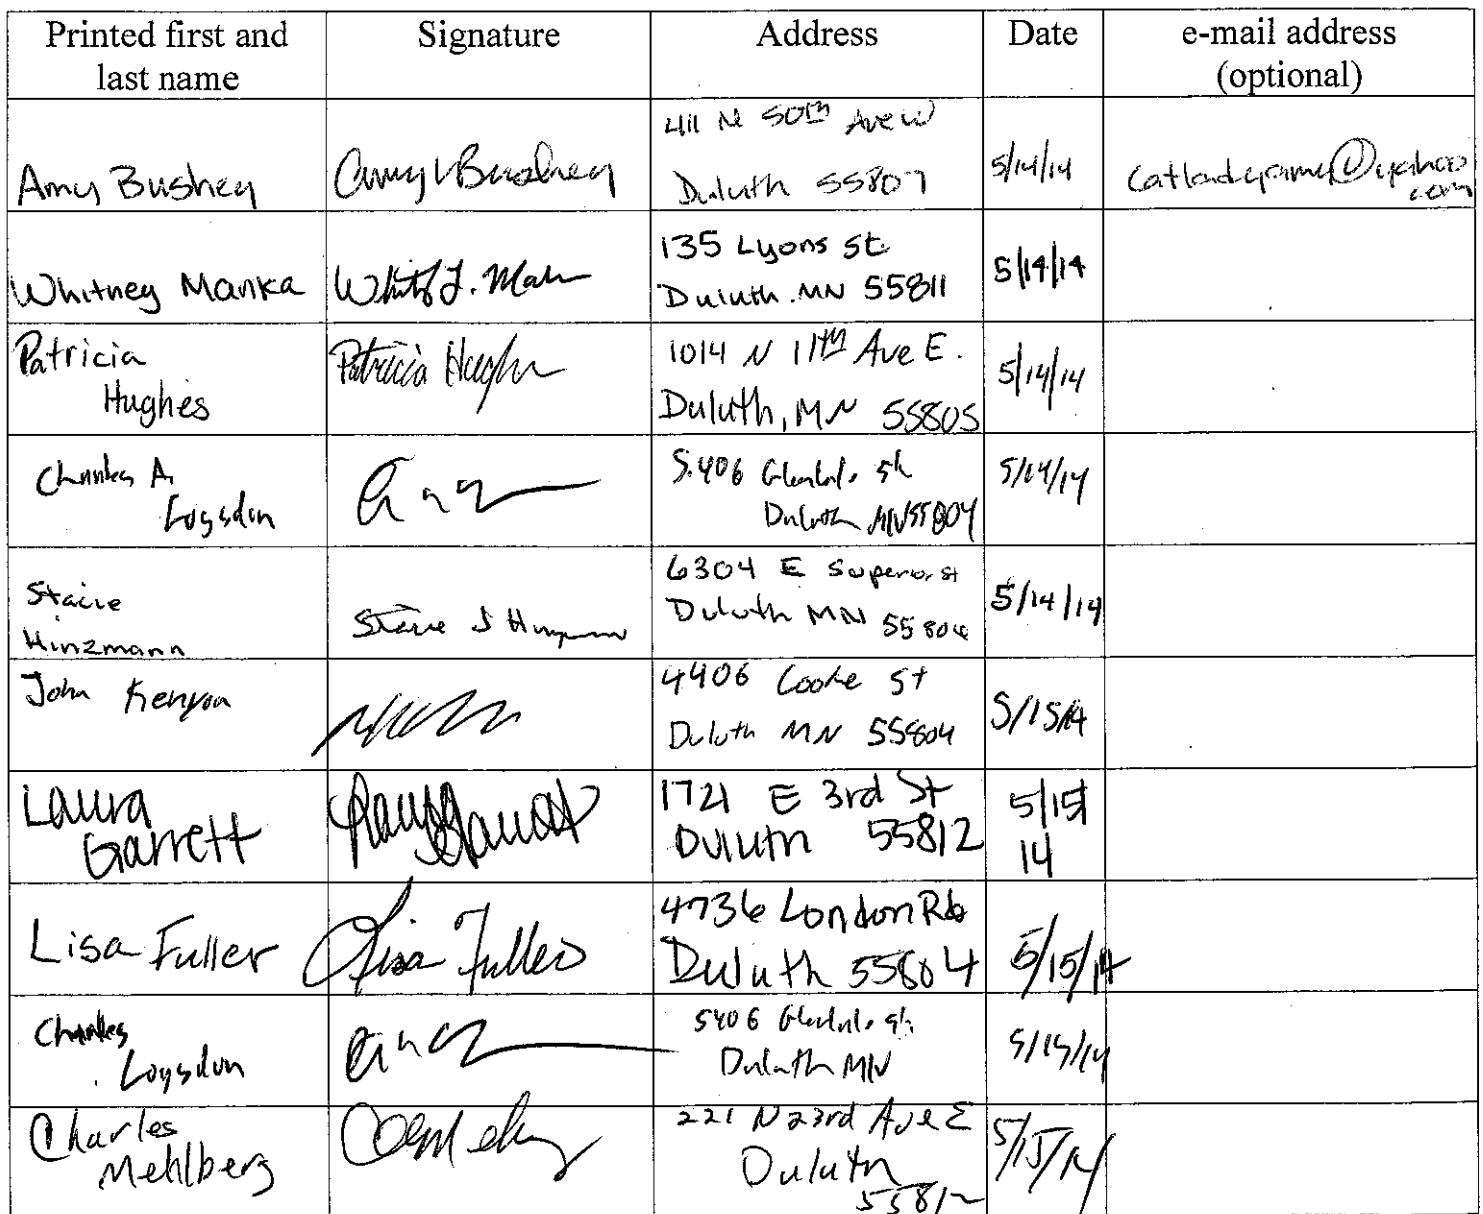 Printed first and last name Signature Address Date e-mail address (optional)
Amy Bushey Amy Bushey 411 N 50th Ave W
Duluth 55807 5/14/14 catladyamy@yahoo.com
Whitney Manka 135 Lyons St
Duluth. MN 55811 5/14/14
Patricia
Hughes Patricia Hughes 1014 N 11th Ave E.
Duluth, MN 55805 5/14/14
Charles A
Logsdon 5406 Glendale St
Duluth MN 55804 5/14/14
Stacie
Hinzmann Stacie J Hinzmann 6304 E Superior St
Duluth MN 55804 5/14/14
John Kenyon 4406 Cooke St
Duluth MN 55804 5/15/14
Laura
Garrett Laura Garrett 1721 E 3rd St
Duluth 55812 5/15/
14
Lisa Fuller Lisa Fuller 4736 London Rd
Duluth 55804 5/15/14
Charles
Logsdon 5406 Glendale St.
Duluth MN 5/15/14
Charles
Mehlberg 221 N 23rd Ave E
Duluth
55812 5/15/14